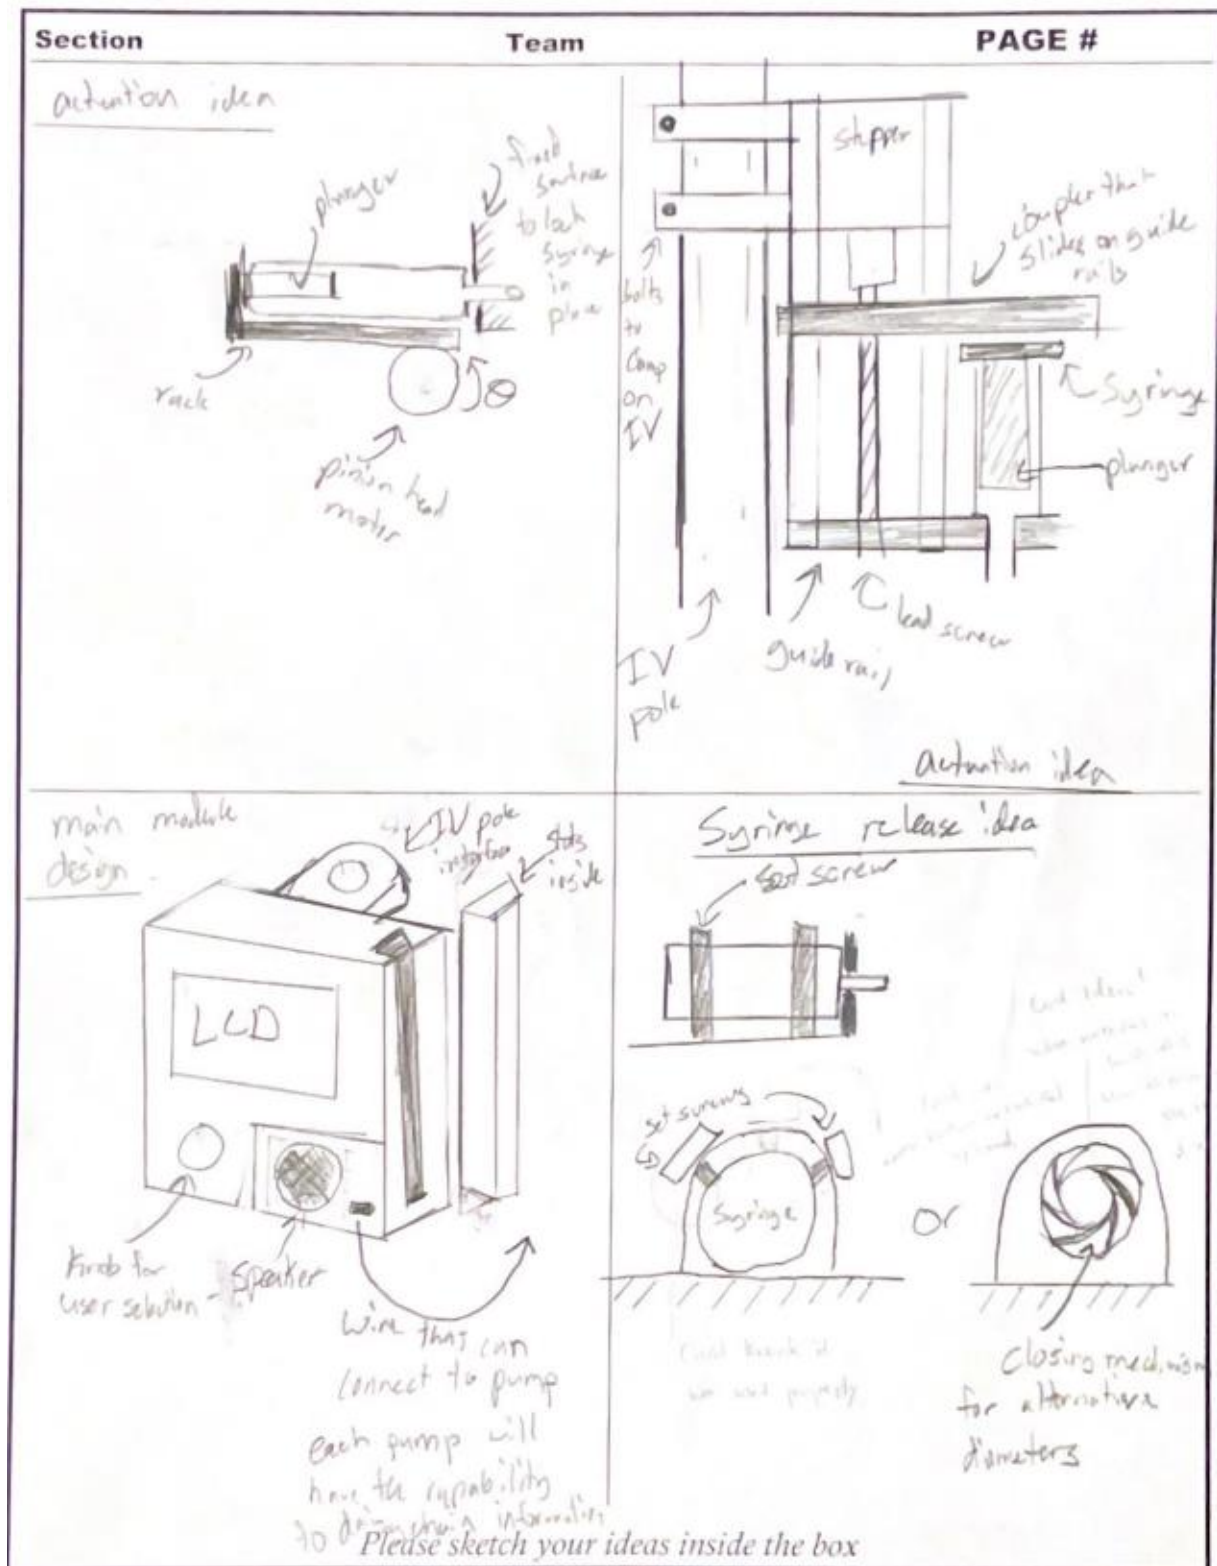 Section Team PAGE #
actuation idea
plunger
fixed
surface
to lock
syringe
in
place
rack
θ
pinion head
motor
stepper
coupler that
slides on guide
rails
bolts
to
Camp
on
IV
Syringe
plunger
lead screw
guide rail
IV
pole
actuation idea
main module
design
IV pole
interface
slots
inside
LCD
Knob for
user selection
Speaker
Wire that can
connect to pump
each pump will
have the capability
to daisy chain information
Syringe release idea
set screw
set screws
Syringe
or
Closing mechanism
for alternative
diameters
Could break if
not used properly
Please sketch your ideas inside the box